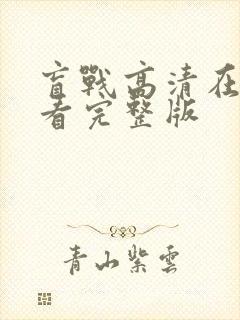 盲戰高清在
看完整版
青山紫雲